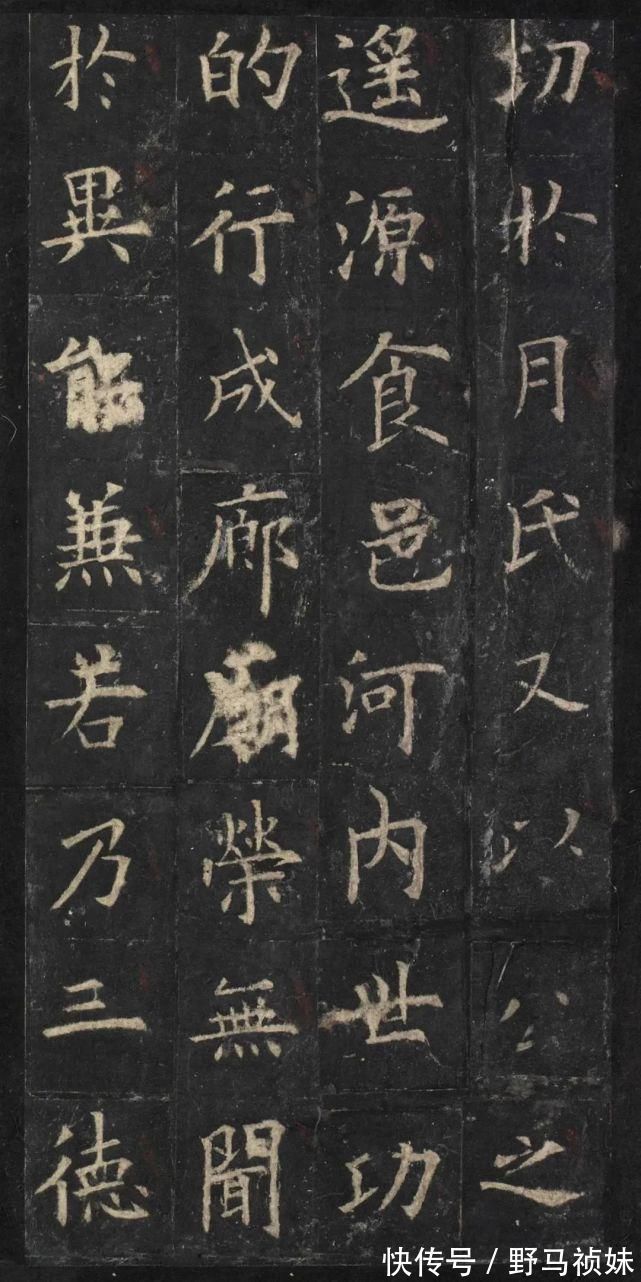 切於月氏又以公之
遥源食邑河内世功
的行成廊廟榮無聞
於異能兼若乃三德
快传号 / 野马祯妹